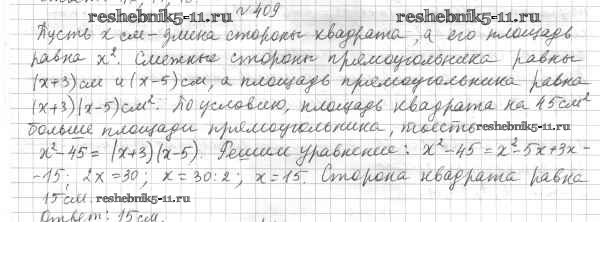 www.reshebnik5-11.ru № 409 www.reshebnik5-11.ru
Пусть x см - длина стороны квадрата, а его площадь
равна x². Смежные стороны прямоугольника равны
(x+3) см и (x-5) см, а площадь прямоугольника равна
(x+3)(x-5) см². По условию, площадь квадрата на 45 см²
больше площади прямоугольника, то есть www.reshebnik5-11.ru
x²-45 = (x+3)(x-5). Решим уравнение: x²-45 = x²-5x+3x-
-15; 2x=30; x = 30:2; x = 15. Сторона квадрата равна
15 см. www.reshebnik5-11.ru
Ответ: 15 см.